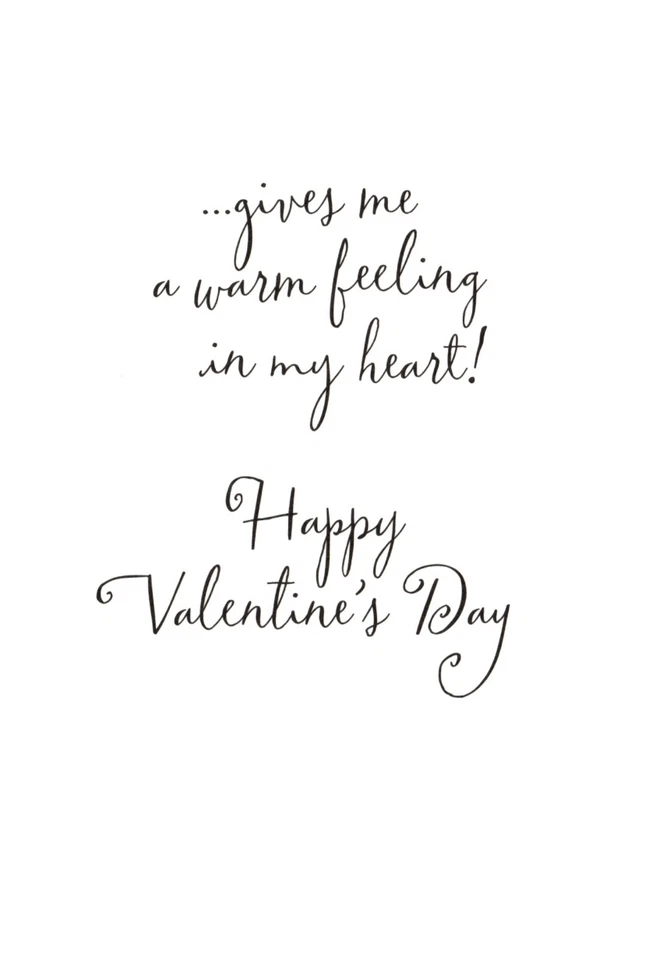 ...gives me
a warm feeling
in my heart!
Happy
Valentine's Day